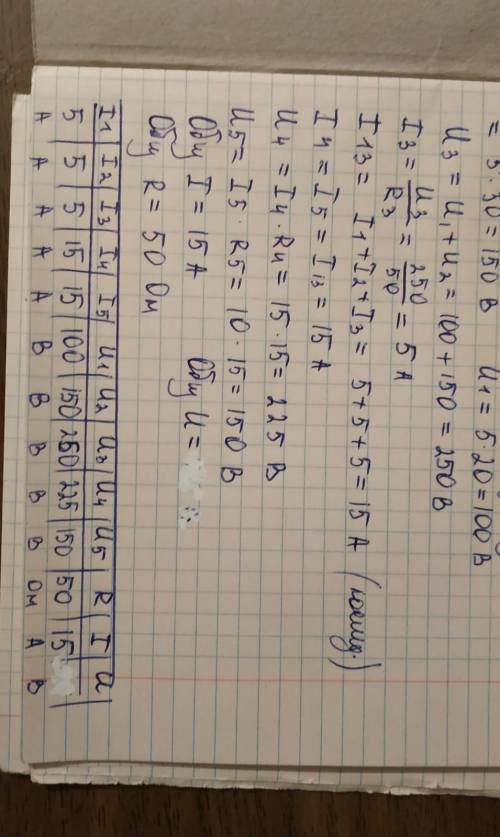 = 5·30 = 150 В U1 = 5·20 = 100 В
U3 = U1 + U2 = 100 + 150 = 250 В
I3 = U3/R3 = 250/50 = 5 А
I13 = I1 + I2 + I3 = 5 + 5 + 5 = 15 А
I4 = I5 = I13 = 15 А
U4 = I4·R4 = 15·15 = 225 В
U5 = I5·R5 = 10·15 = 150 В
Общ I = 15 А Общ U =
Общ R = 50 Ом
I1 | I2 | I3 | I4 | I5 | U1 | U2 | U3 | U4 | U5 | R | I | U
5 | 5 | 5 | 15 | 15 | 100 | 150 | 250 | 225 | 150 | 50 | 15
А А А А А В В В В В Ом А В